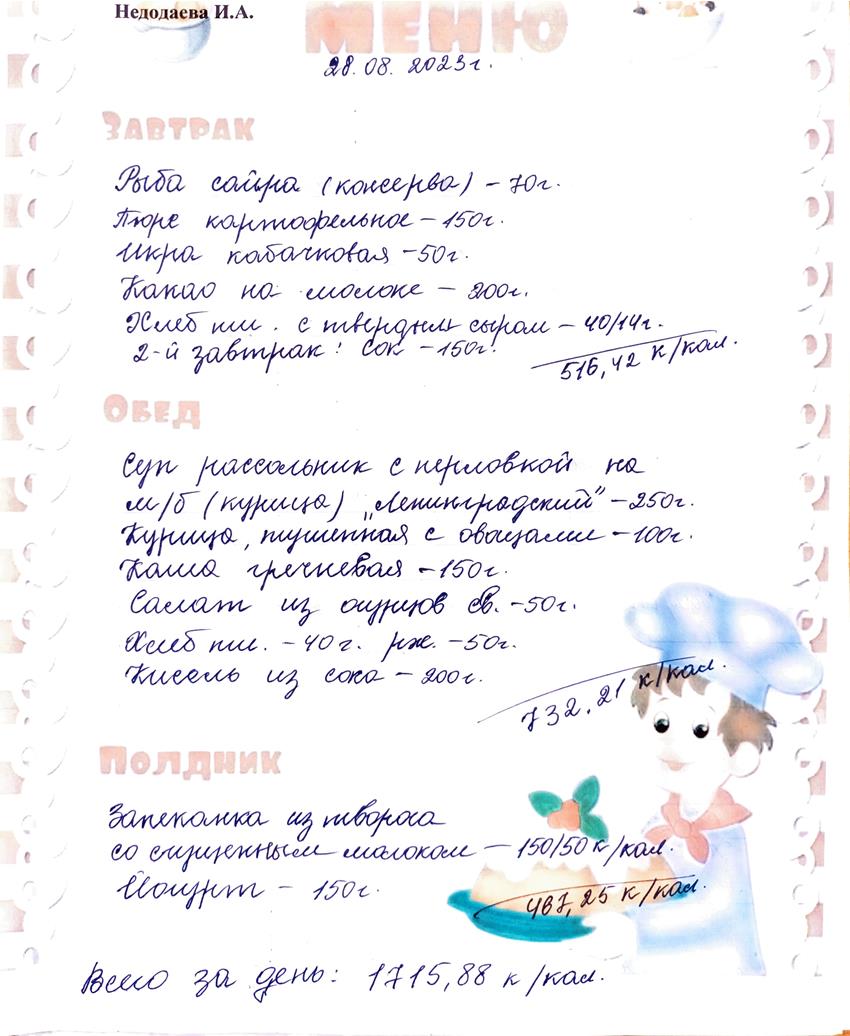 Недодаева И.А.
МЕНЮ
28.08.2023г.
ЗАВТРАК
Рыба сайра (консерва) - 70г.
Пюре картофельное - 150г.
Икра кабачковая - 50г.
Какао на молоке - 200г.
Хлеб пш. с твердым сыром - 40/14г.
2-й завтрак: Сок - 150г.
516,42 к/кал.
ОБЕД
Суп рассольник с перловкой на
м/б (курица) „Ленинградский" - 250г.
Курица, тушенная с овощами - 100г.
Каша гречневая - 150г.
Салат из огурцов св. - 50г.
Хлеб пш. - 40г. рж. - 50г.
Кисель из сока - 200г.
732,21 к/кал.
ПОЛДНИК
Запеканка из творога
со сгущенным молоком - 150/50 к/кал.
Йогурт - 150г.
467,25 к/кал.
Всего за день: 1715,88 к/кал.